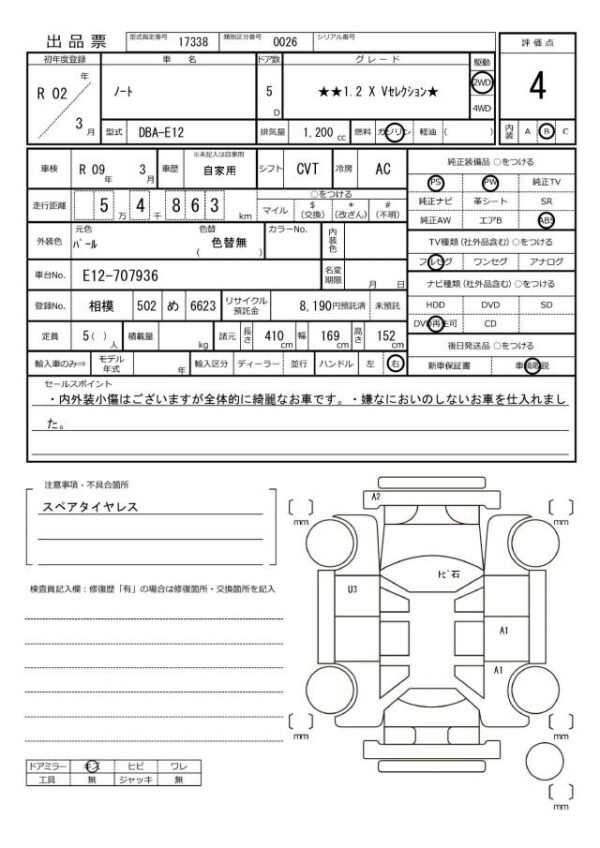 出品票 型式指定番号 17338 類別区分番号 0026 シリアル番号
評価点
初年度登録 車名 ドア数 グレード 駆動
R 02 年 ノート 5 D ★★1.2 X Vセレクション★ 2WD 4
3 月 4WD
型式 DBA-E12 排気量 1,200 cc 燃料 ガソリン 軽油 ( ) 内装 A B C
車検 R 09 年 3 月 車歴 ※未記入は自家用 自家用 シフト CVT 冷房 AC
純正装備品 ○をつける
PS PW 純正TV
走行距離 5 万 4 千 8 6 3 km ○をつける
マイル $ (交換) * (改ざん) # (不明)
純正ナビ 革シート SR
純正AW エアB ABS
外装色 元色 パール 色替 色替無 ( ) カラーNo. 内装色
TV種類 (社外品含む) ○をつける
フルセグ ワンセグ アナログ
車台No. E12-707936 名変期限 月 日
ナビ種類 (社外品含む) ○をつける
登録No. 相模 502 め 6623 リサイクル預託金 8,190円預託済 未預託
HDD DVD SD
DVD再生可 CD
定員 5( ) 人 積載量 kg 諸元 長さ 410 cm 幅 169 cm 高さ 152 cm
後日発送品 ○をつける
輸入車のみ⇒ モデル年式 年 輸入区分 ディーラー 並行 ハンドル 左 右
新車保証書 車輌取説
セールスポイント
・内外装小傷はございますが全体的に綺麗なお車です。・嫌なにおいのしないお車を仕入れまし
た。
注意事項・不具合箇所
スペアタイヤレス
検査員記入欄：修復歴「有」の場合は修復箇所・交換箇所を記入
A2
mm
mm
トビ石
U3
A1
A1
mm
mm
mm
ドアミラー キズ ヒビ ワレ
工具 無 ジャッキ 無